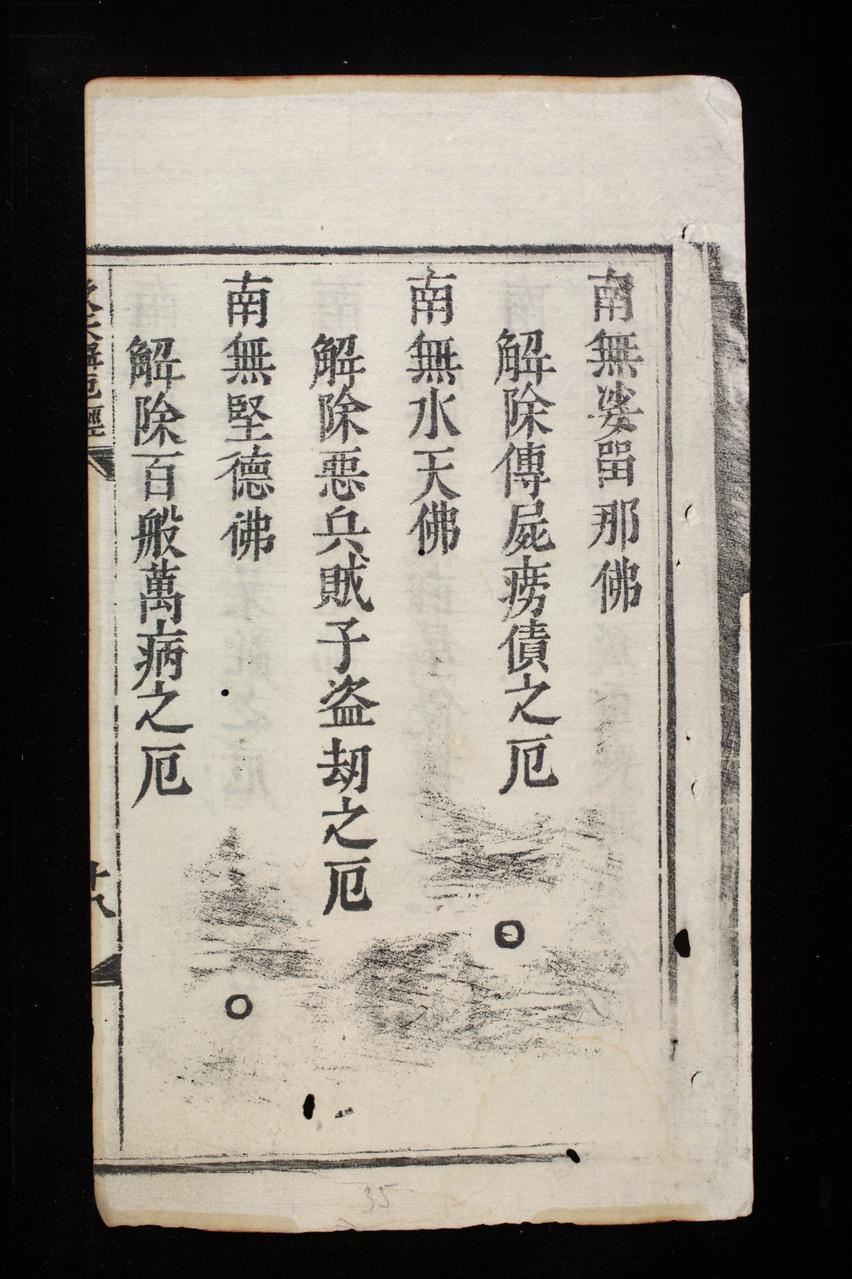 南無娑畱那佛
解除傳屍癆債之厄
南無水天佛
解除惡兵賊子盗刼之厄
南無堅德佛
解除百般萬病之厄
解厄經
廿八
35